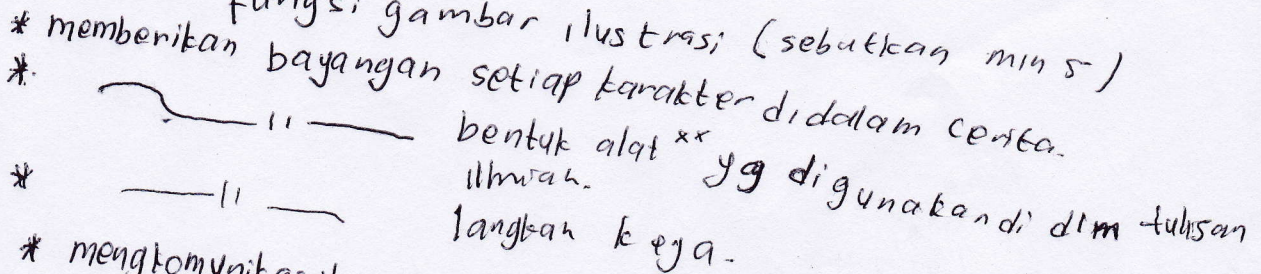 fungsi gambar ilustrasi (sebutkan min 5)
* memberikan bayangan setiap karakter didalam cerita.
* —— 11 —— bentuk alat ** yg digunakan di dlm tulisan
ilmiah.
* —— 11 —— langkah keja.
* mengkomunikas